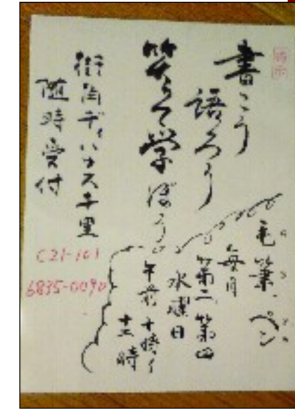 書こう
語ろう
笑って学ぼう
毛筆、ペン
毎月
第二、第四
水曜日
午前十時〜
十二時
街角デイハウス千里
随時受付
C21-101
6835-0090